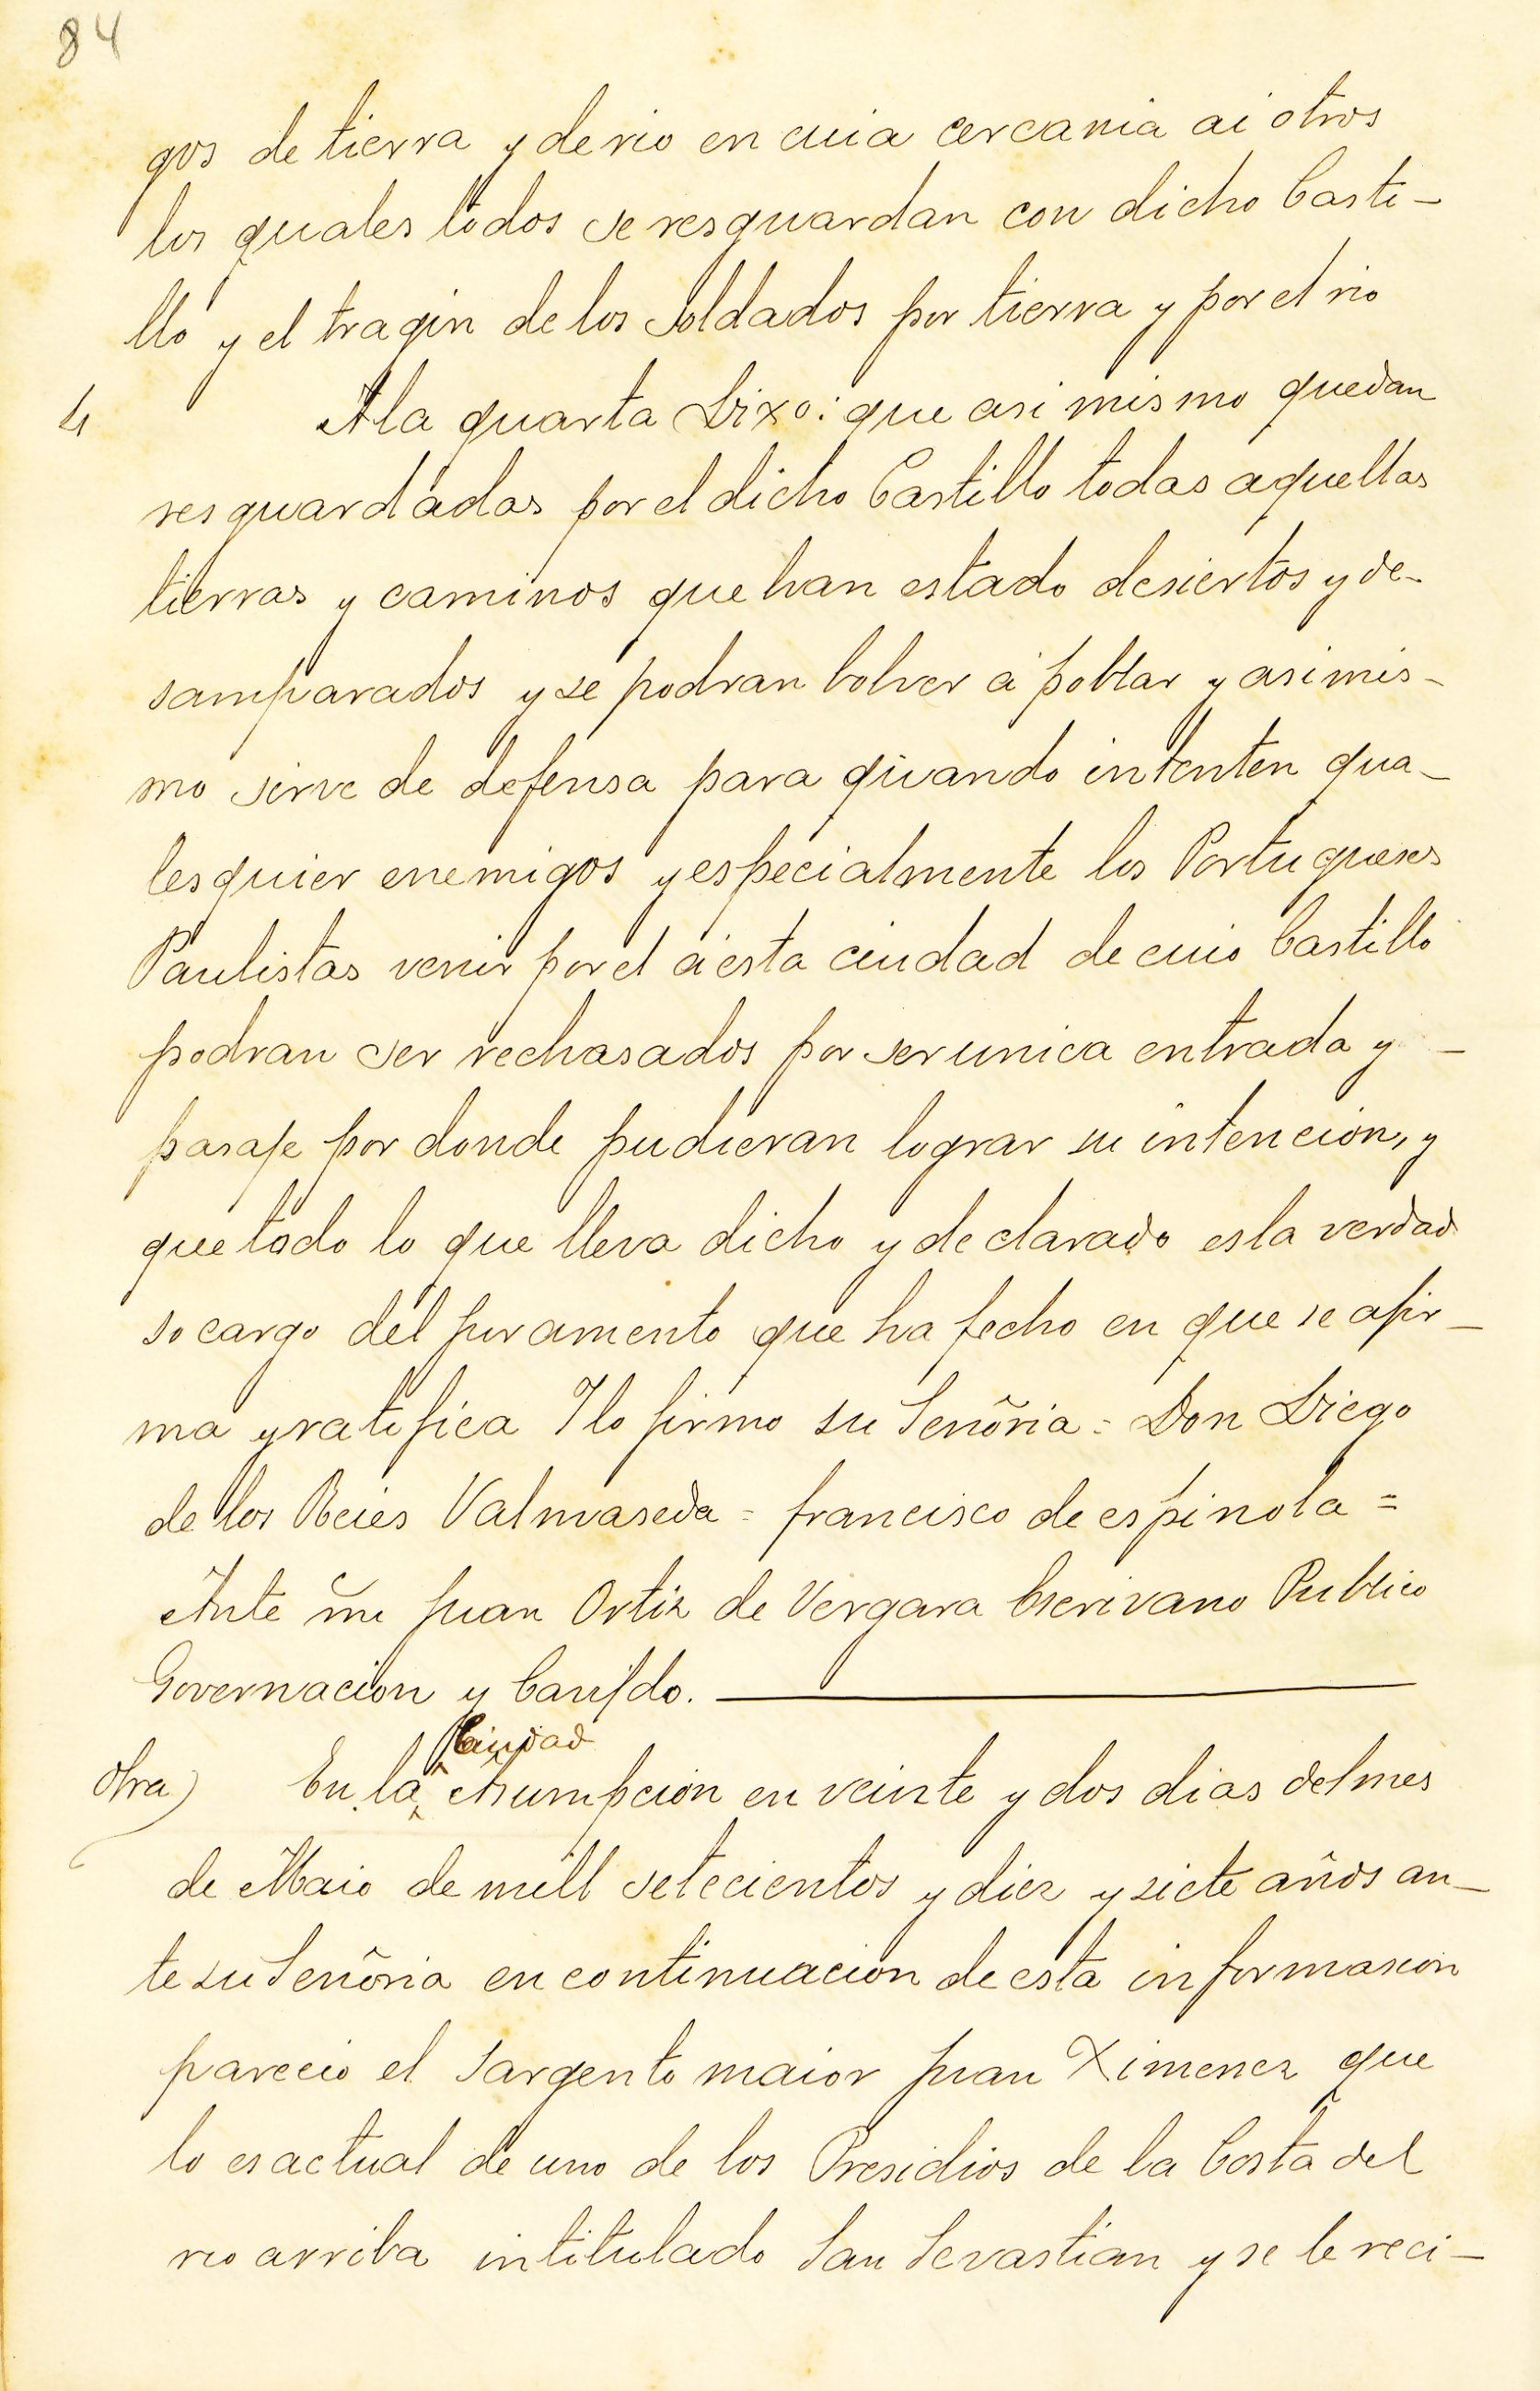 84
gos de tierra y de rio en cuia cercania ai otros
los quales todos se resguardan con dicho Casti-
llo y el tragin de los soldados por tierra y por el rio
4 A la quarta Dixo: que asi mismo quedan
resguardadas por el dicho Castillo todas aquellas
tierras y caminos que han estado desiertos y de-
samparados y se podran bolver á poblar y asi mis-
mo sirve de defensa para quando intenten qua-
lesquier enemigos y especialmente los Portugueses
Paulistas venir por el á esta ciudad de cuio Castillo
podran ser rechasados por ser unica entrada y -
pasaje por donde pudieran lograr su intencion, y
que todo lo que lleva dicho y declarado es la verdad
so cargo del juramento que ha fecho en que se afir-
ma y ratifica Y lo firmo su Señoria = Don Diego
de los Reies Valmaseda = francisco de espinola =
Ante mi Juan Ortiz de Vergara Escrivano Publico
Governacion y Cavildo.
Ciudad
Otra) En la Asumpcion en veinte y dos dias del mes
de Maio de mill setecientos y diez y siete años an-
te su Señoria en continuacion de esta informasion
parecio el Sargento maior Juan Ximenez que
lo es actual de uno de los Presidios de la Costa del
rio arriba intitulado San Sevastian y se le reci-